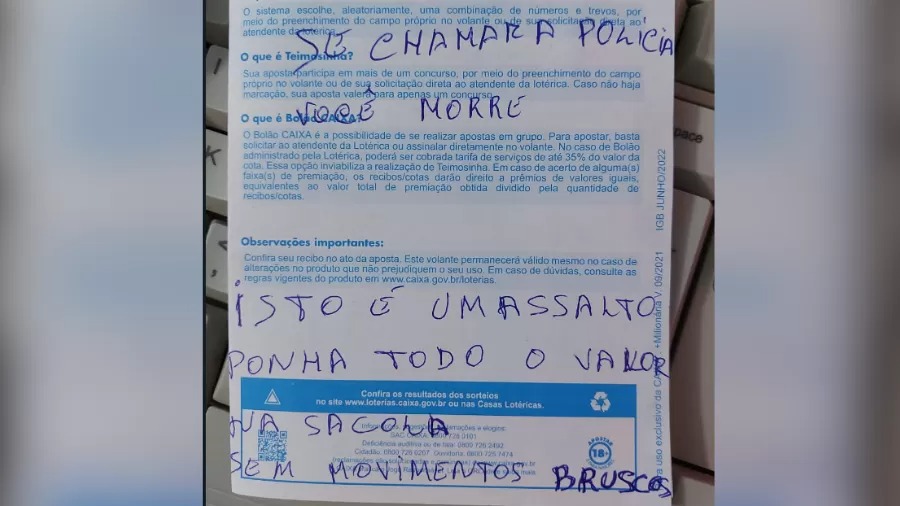 O sistema escolhe, aleatoriamente, uma combinação de números e trevos, por
meio do preenchimento do campo próprio no volante ou de sua solicitação direta ao
atendente da lotérica.
SE CHAMAR A POLICIA
O que é Teimosinha?
Sua aposta participa em mais de um concurso, por meio do preenchimento do campo
próprio no volante ou de sua solicitação direta ao atendente da lotérica. Caso não haja
marcação, sua aposta valerá para apenas um concurso.
VOCÊ MORRE
O que é Bolão CAIXA?
O Bolão CAIXA é a possibilidade de se realizar apostas em grupo. Para apostar, basta
solicitar ao atendente da Lotérica ou assinalar diretamente no volante. No caso de Bolão
administrado pela Lotérica, poderá ser cobrada tarifa de serviços de até 35% do valor da
cota. Essa opção inviabiliza a realização de Teimosinha. Em caso de acerto de alguma(s)
faixa(s) de premiação, os recibos/cotas darão direito a prêmios de valores iguais,
equivalentes ao valor total de premiação obtida dividido pela quantidade de
recibos/cotas.
Observações importantes:
Confira seu recibo no ato da aposta. Este volante permanecerá válido mesmo no caso de
alterações no produto que não prejudiquem o seu uso. Em caso de dúvidas, consulte as
regras vigentes do produto em www.caixa.gov.br/loterias.
ISTO É UM ASSALTO
PONHA TODO O VALOR
Confira os resultados dos sorteios
no site www.loterias.caixa.gov.br ou nas Casas Lotéricas.
NA SACOLA
SAC CAIXA: 0800 726 0101
Deficiência auditiva ou de fala: 0800 726 2492
0800 726 0207 Ouvidoria: 0800 725 7474
SEM MOVIMENTOS BRUSCOS
18+
IGB JUNHO/2022
uso exclusivo da +Milionária V. 09/2021
K
pace